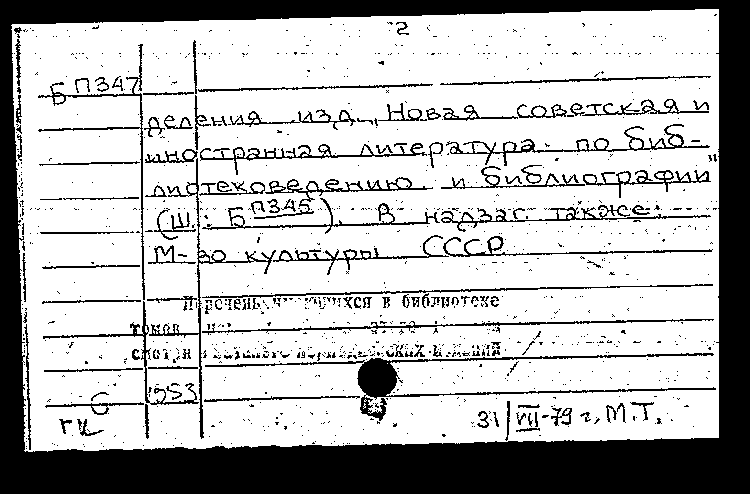 2
Б П347
деления изд. „Новая советская и
иностранная литература по биб-
лиотековедению и библиографии"
(Ш: Б П345). В надзаг также:
М-во культуры СССР
Перечень имеющихся в библиотеке
томов
смотри в каталоге периодических изданий
6 1353
гк
31/VII-79 г. М.Т.